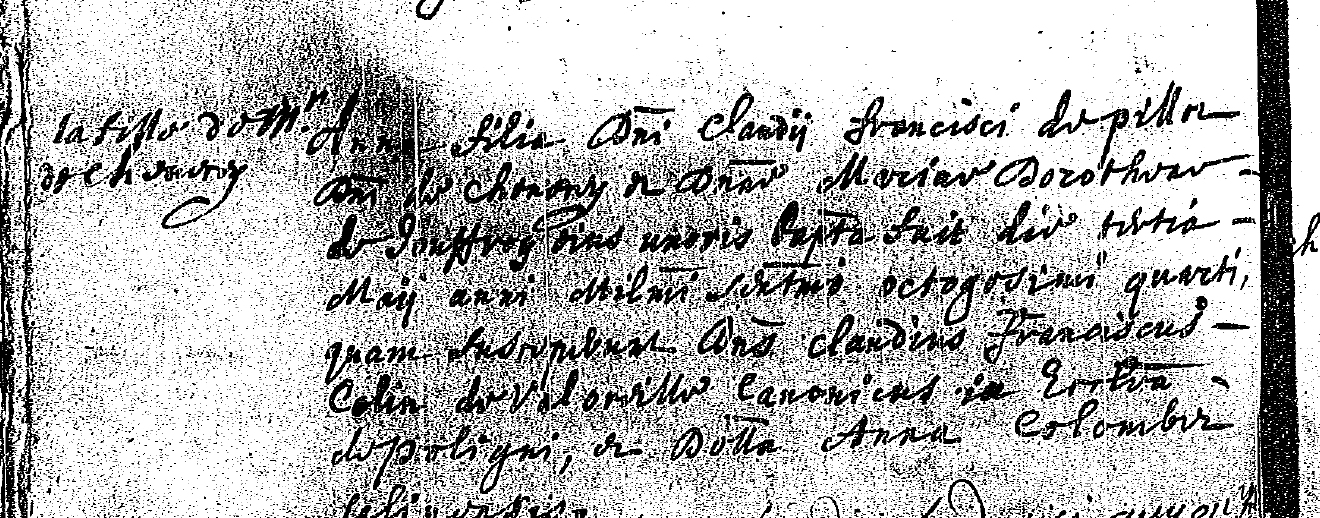 la fille de Mr
de Chenecey
Anna filia Dni Claudij Francisci de pillot
Dni de Chenecey et Dnae Mariae Dorotheae
de Jouffroy eius uxoris bapta fuit die tertia
Maij anni Milmi Sextmi octogesimi quarti,
quam Susceperunt Dns Claudius Franciscus
Colin de Valoreille Canonicus in Ecclia
de poligni, et Dolla Anna Colombet